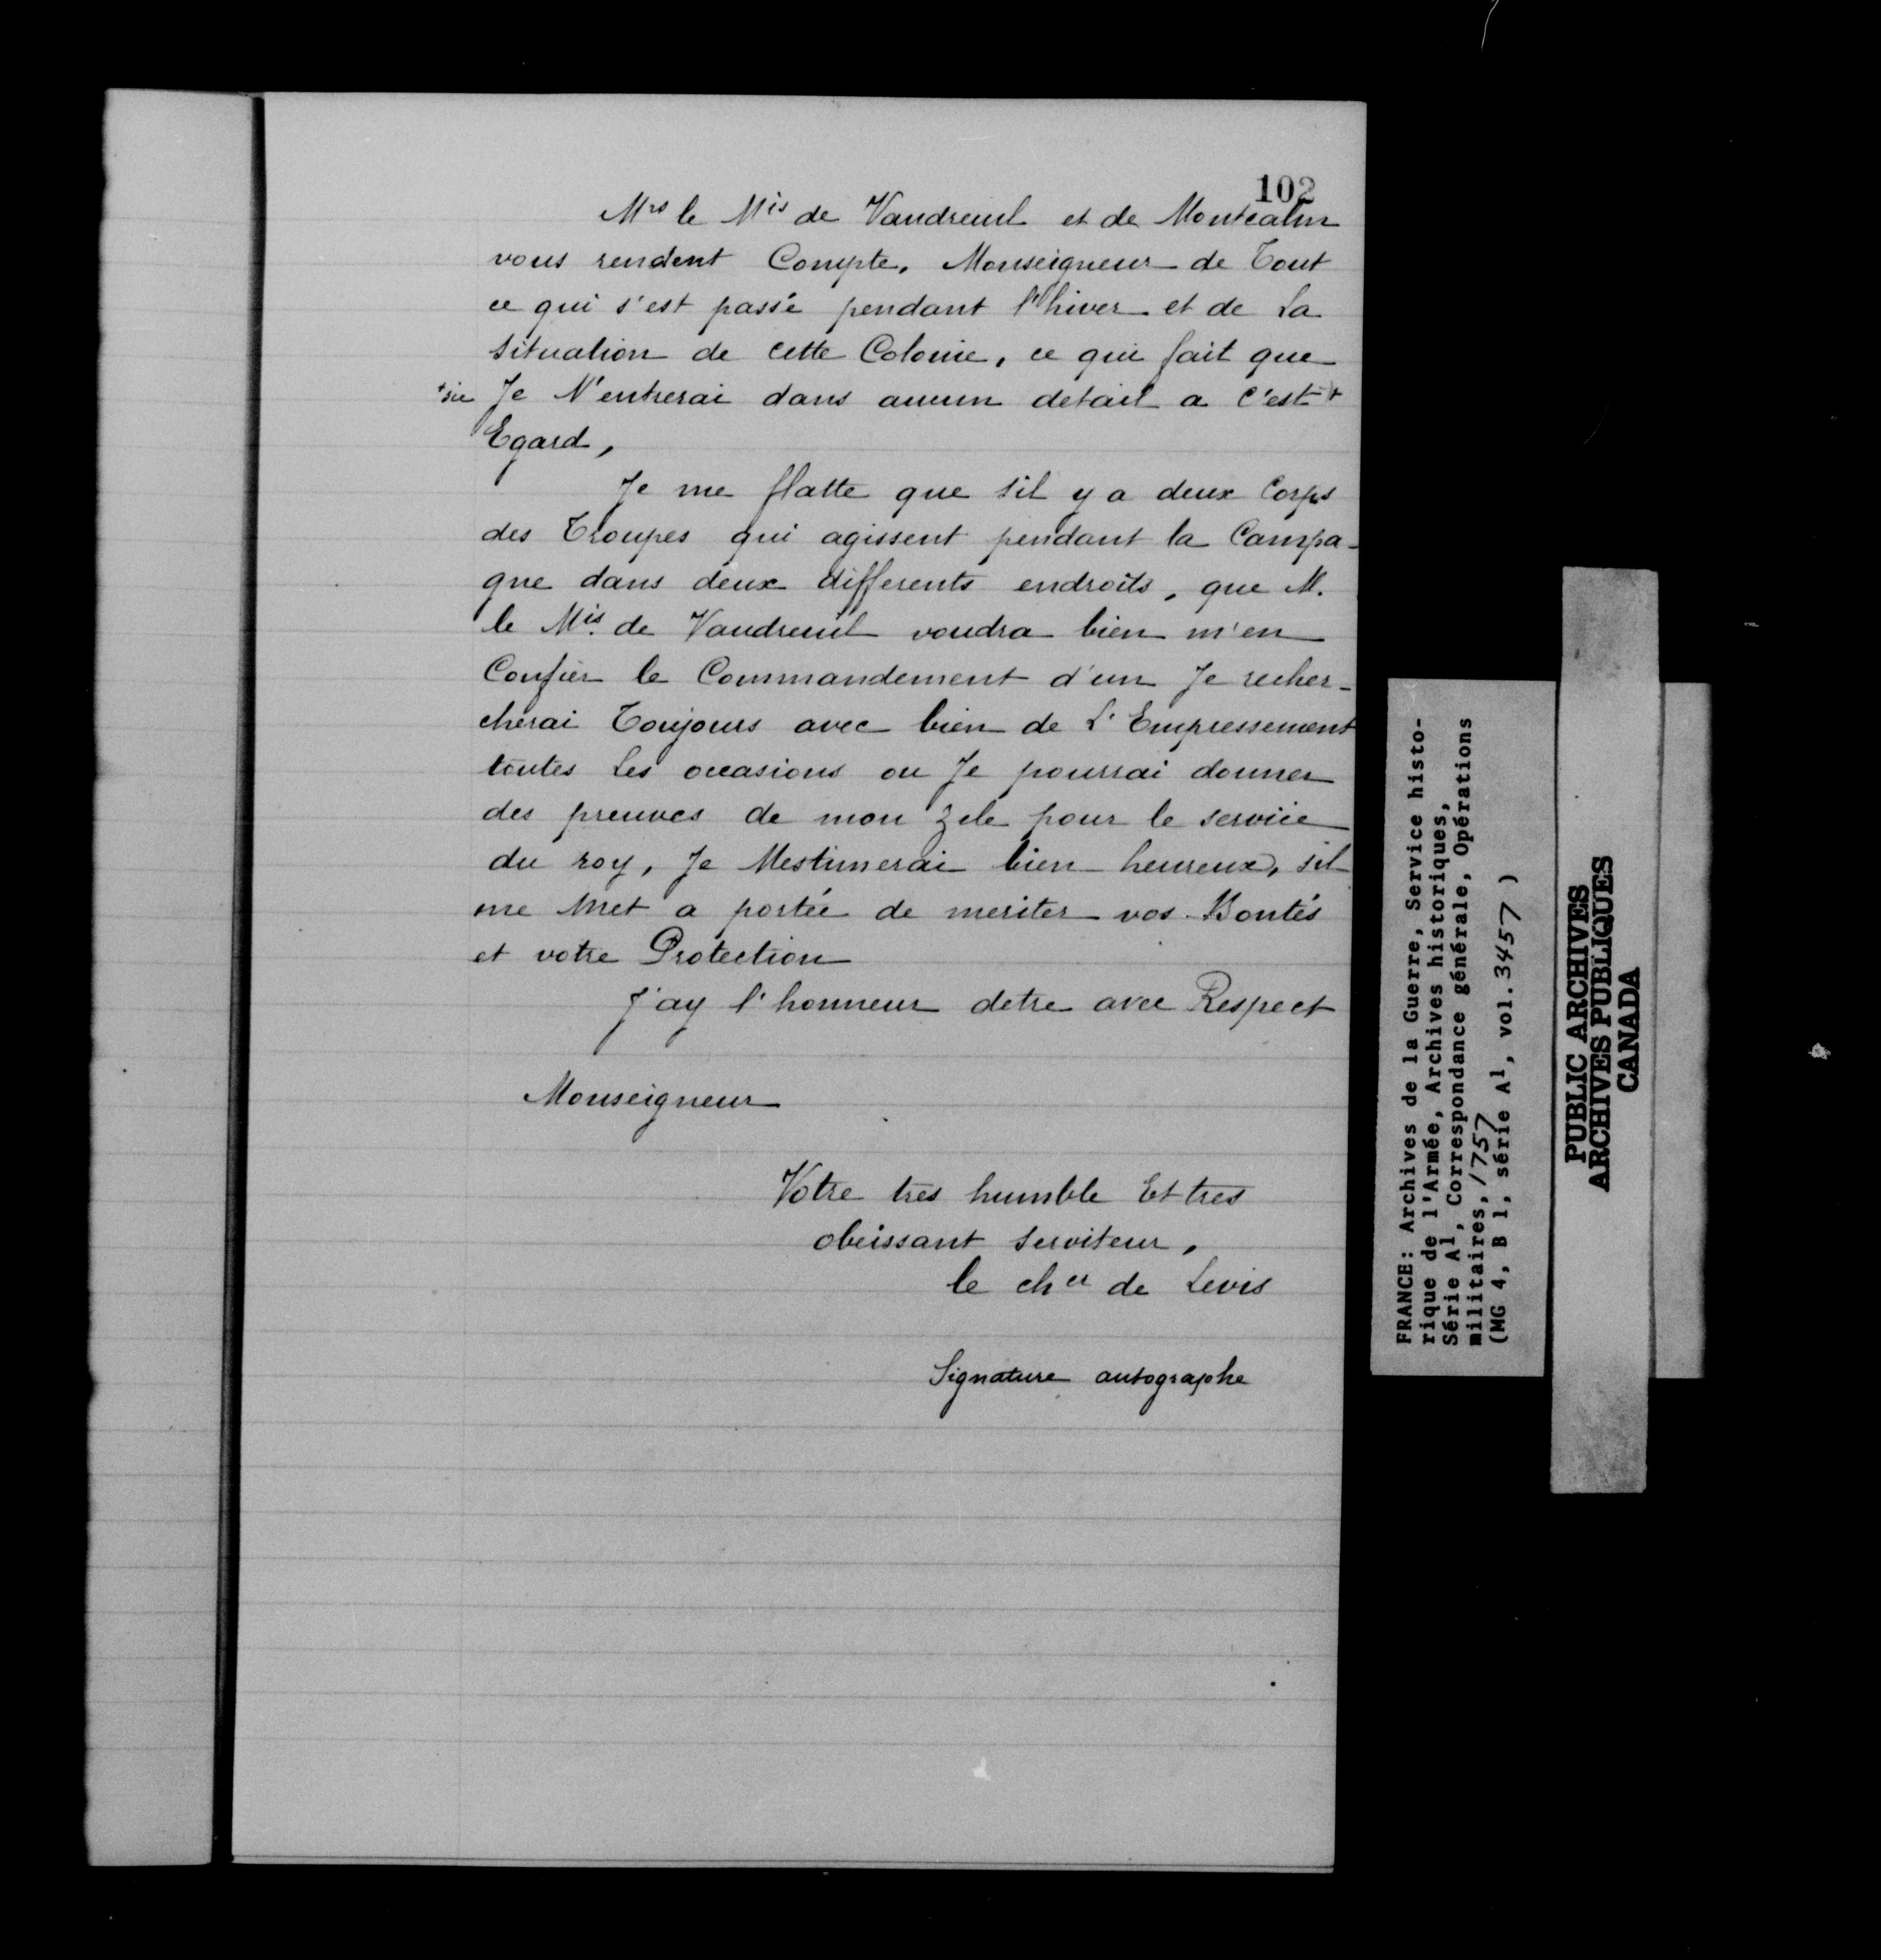 102
Mrs le Mis de Vaudreuil et de Montcalm
vous rendent Compte, Monseigneur de Tout
ce qui s'est passé pendant l'hiver et de La
situation de cette Colonie, ce qui fait que
+sic Je N'entrerai dans aucun detail a C'est +
Egard,
Je me flatte que sil y a deux Corps
des Troupes qui agissent pendant la Campa-
gne dans deux differents endroits, que M.
le Mis de Vaudreuil voudra bien m'en
Confier le Commandement d'un Je recher-
cherai Toujours avec bien de L'Empressement
toutes Les occasions ou Je pourrai donner
des preuves de mon Zele pour le service
du roy, Je Mestimerai bien heureux, sil
me Met a portée de meriter vos Bontés
et votre Protection
J'ay l'honneur detre avec Respect
Monseigneur
Votre tres humble Et tres
obeissant serviteur,
le cher de Levis
Signature autographe
FRANCE: Archives de la Guerre, Service histo-
rique de l'Armée, Archives historiques,
Série A1, Correspondance générale, Opérations
militaires, 1757
(MG 4, B 1, série A1, vol. 3457)
PUBLIC ARCHIVES
ARCHIVES PUBLIQUES
CANADA